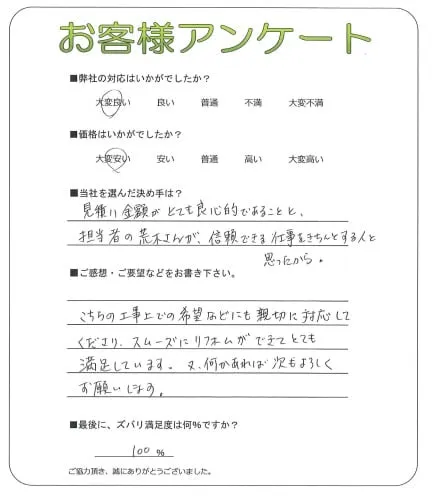 お客様アンケート
■弊社の対応はいかがでしたか？
大変良い 良い 普通 不満 大変不満
■価格はいかがでしたか？
大変安い 安い 普通 高い 大変高い
■当社を選んだ決め手は？
見積り金額がとても良心的であることと、
担当者の荒木さんが、信頼できる仕事をきちんとする人と
思ったから。
■ご感想・ご要望などをお書き下さい。
こちらの工事上での希望などにも親切に対応して
くださり、スムーズにリフォムができてとても
満足しています。又、何かあれば次もよろしく
お願いします。
■最後に、ズバリ満足度は何%ですか？
100 %
ご協力頂き、誠にありがとうございました。